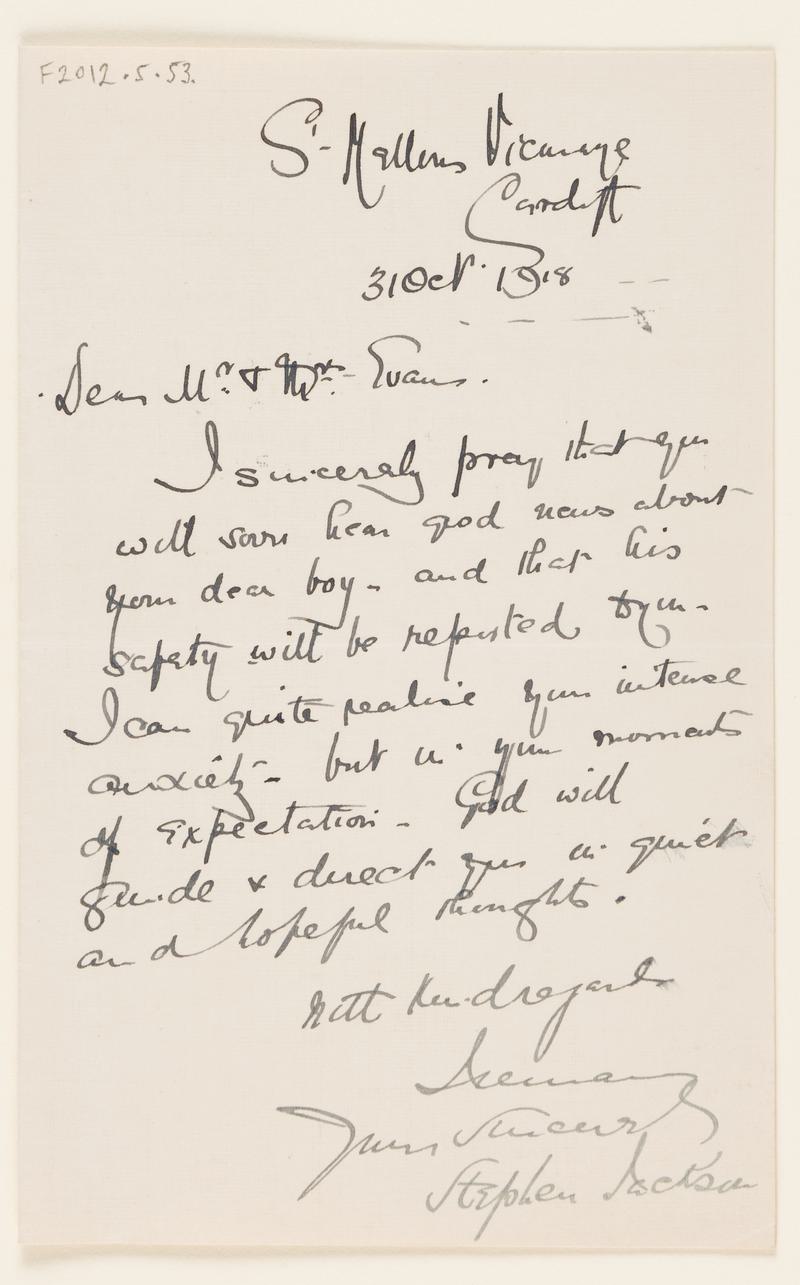 F2012.5.53.
St- Mellons Vicarage
Cardiff
31 Oct. 1918
Dear Mr. & Mrs. Evans.
I sincerely pray that you
will soon hear good news about
your dear boy - and that his
safety will be reported to you -
I can quite realise your intense
anxiety - but in your moments
of expectation - God will
guide & direct you in quiet
and hopeful thoughts.
With Kind regards
I remain
Yours Sincerely
Stephen Jackson